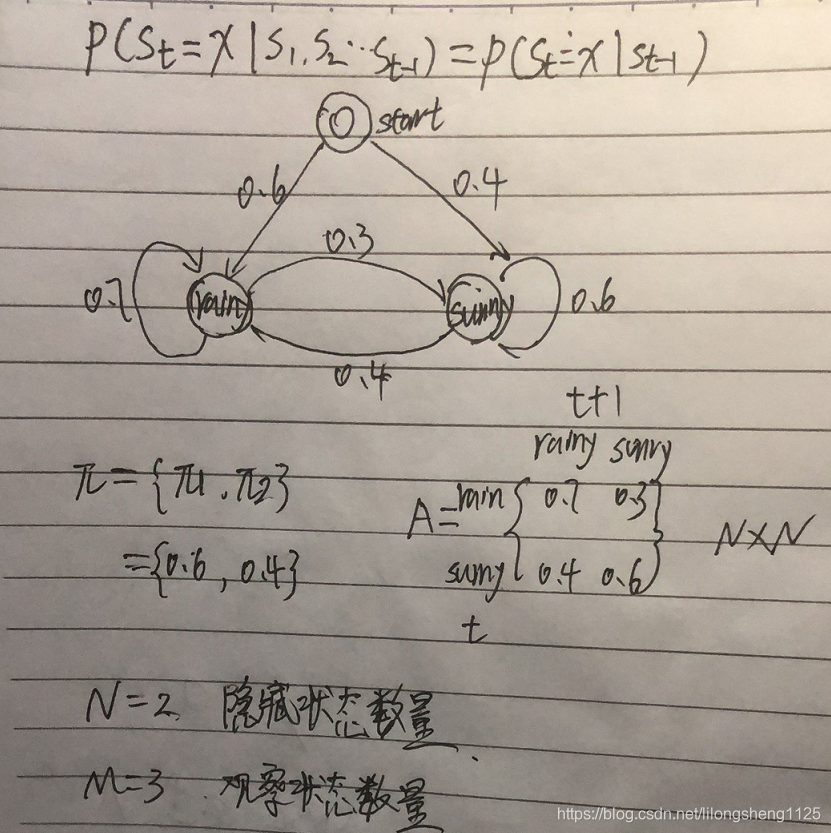 P(St=X|S1,S2··St-1)=P(St=X|St-1)
start
0.6 0.4
0.3
0.7 rain sunny 0.6
0.4
t+1
rainy sunny
π={π1,π2}
A=rain{0.7 0.3} N×N
={0.6,0.4}
sunny 0.4 0.6
t
N=2 隐藏状态数量
M=3 观察状态数量
https://blog.csdn.net/lilongsheng1125